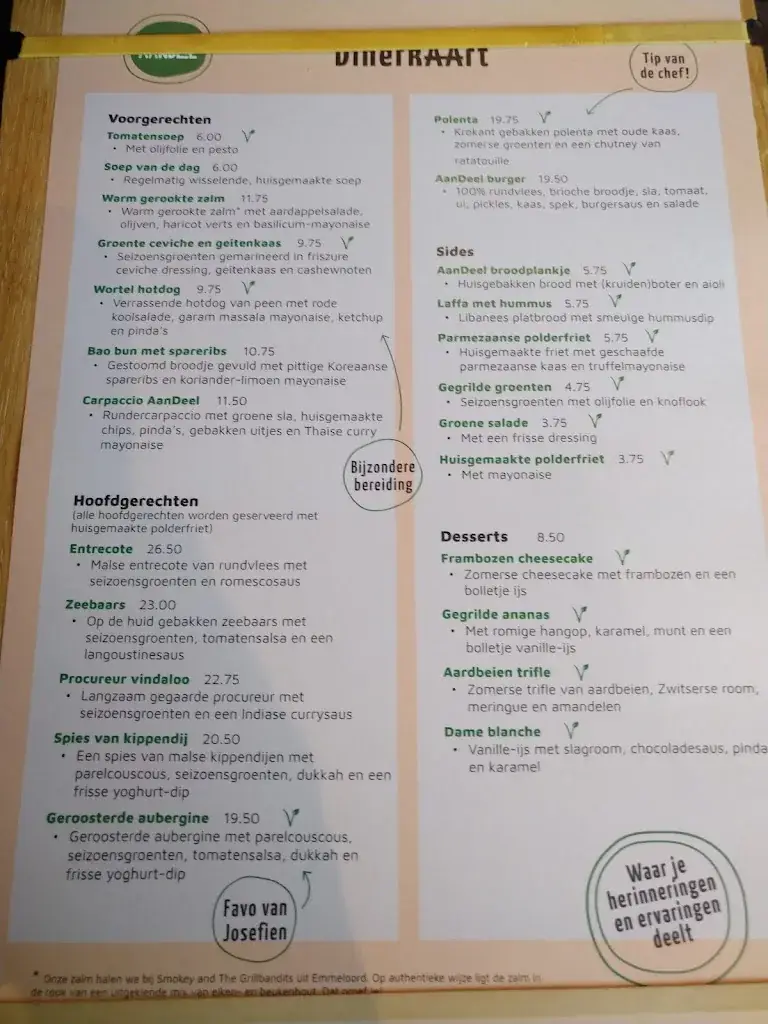 AANDEEL
DinerkAArt
Tip van
de chef!
Voorgerechten
Tomatensoep 6.00
• Met olijfolie en pesto
Soep van de dag 6.00
• Regelmatig wisselende, huisgemaakte soep
Warm gerookte zalm 11.75
• Warm gerookte zalm* met aardappelsalade,
olijven, haricot verts en basilicum-mayonaise
Groente ceviche en geitenkaas 9.75
• Seizoensgroenten gemarineerd in friszure
ceviche dressing, geitenkaas en cashewnoten
Wortel hotdog 9.75
• Verrassende hotdog van peen met rode
koolsalade, garam massala mayonaise, ketchup
en pinda's
Bao bun met spareribs 10.75
• Gestoomd broodje gevuld met pittige Koreaanse
spareribs en koriander-limoen mayonaise
Carpaccio AanDeel 11.50
• Rundercarpaccio met groene sla, huisgemaakte
chips, pinda's, gebakken uitjes en Thaise curry
mayonaise
Bijzondere
bereiding
Hoofdgerechten
(alle hoofdgerechten worden geserveerd met
huisgemaakte polderfriet)
Entrecote 26.50
• Malse entrecote van rundvlees met
seizoensgroenten en romescosaus
Zeebaars 23.00
• Op de huid gebakken zeebaars met
seizoensgroenten, tomatensalsa en een
langoustinesaus
Procureur vindaloo 22.75
• Langzaam gegaarde procureur met
seizoensgroenten en een Indiase currysaus
Spies van kippendij 20.50
• Een spies van malse kippendijen met
parelcouscous, seizoensgroenten, dukkah en een
frisse yoghurt-dip
Geroosterde aubergine 19.50
• Geroosterde aubergine met parelcouscous,
seizoensgroenten, tomatensalsa, dukkah en
frisse yoghurt-dip
Favo van
Josefien
Polenta 19.75
• Krokant gebakken polenta met oude kaas,
zomerse groenten en een chutney van
ratatouille
AanDeel burger 19.50
• 100% rundvlees, brioche broodje, sla, tomaat,
ui, pickles, kaas, spek, burgersaus en salade
Sides
AanDeel broodplankje 5.75
• Huisgebakken brood met (kruiden)boter en aioli
Laffa met hummus 5.75
• Libanees platbrood met smeuïge hummusdip
Parmezaanse polderfriet 5.75
• Huisgemaakte friet met geschaafde
parmezaanse kaas en truffelmayonaise
Gegrilde groenten 4.75
• Seizoensgroenten met olijfolie en knoflook
Groene salade 3.75
• Met een frisse dressing
Huisgemaakte polderfriet 3.75
• Met mayonaise
Desserts 8.50
Frambozen cheesecake
• Zomerse cheesecake met frambozen en een
bolletje ijs
Gegrilde ananas
• Met romige hangop, karamel, munt en een
bolletje vanille-ijs
Aardbeien trifle
• Zomerse trifle van aardbeien, Zwitserse room,
meringue en amandelen
Dame blanche
• Vanille-ijs met slagroom, chocoladesaus, pinda
en karamel
Waar je
herinneringen
en ervaringen
deelt
* Onze zalm halen we bij Smokey and The Grillbandits uit Emmeloord. Op authentieke wijze ligt de zalm in
de rook van een uitgekiende mix van eiken- en beukenhout. Dat proef je!